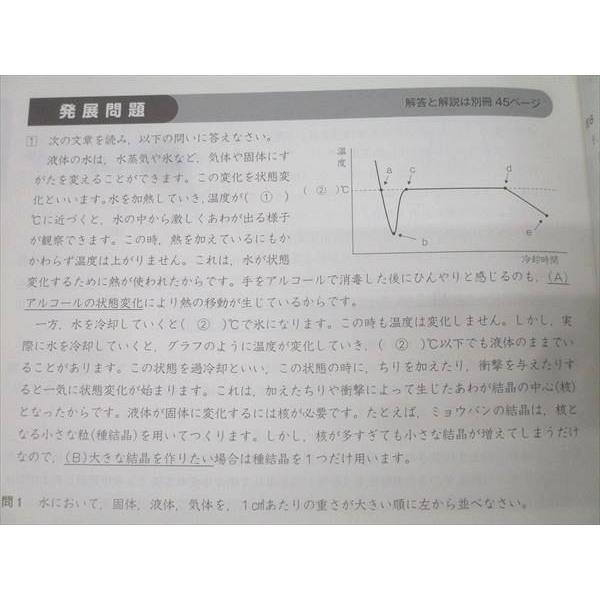 発展問題
解答と解説は別冊 45ページ
1 次の文章を読み，以下の問いに答えなさい。
液体の水は，水蒸気や氷など，気体や固体にす
がたを変えることができます。この変化を状態変
化といいます。水を加熱していき，温度が( ① )
℃に近づくと，水の中から激しくあわが出る様子
が観察できます。この時，熱を加えているにもか
かわらず温度は上がりません。これは，水が状態
変化するために熱が使われたからです。手をアルコールで消毒した後にひんやりと感じるのも，(A)
アルコールの状態変化により熱の移動が生じているからです。
一方，水を冷却していくと( ② )℃で氷になります。この時も温度は変化しません。しかし，実
際に水を冷却していくと，グラフのように温度が変化していき，( ② )℃以下でも液体のままでい
ることがあります。この状態を過冷却といい，この状態の時に，ちりを加えたり，衝撃を与えたりす
ると一気に状態変化が始まります。これは，加えたちりや衝撃によって生じたあわが結晶の中心(核)
となったからです。液体が固体に変化するには核が必要です。たとえば，ミョウバンの結晶は，核と
なる小さな粒(種結晶)を用いてつくります。しかし，核が多すぎても小さな結晶が増えてしまうだけ
なので，(B)大きな結晶を作りたい場合は種結晶を1つだけ用います。
温度
( ② )℃
a
c
d
b
e
冷却時間
問1 水において，固体，液体，気体を，1㎤あたりの重さが大きい順に左から並べなさい。